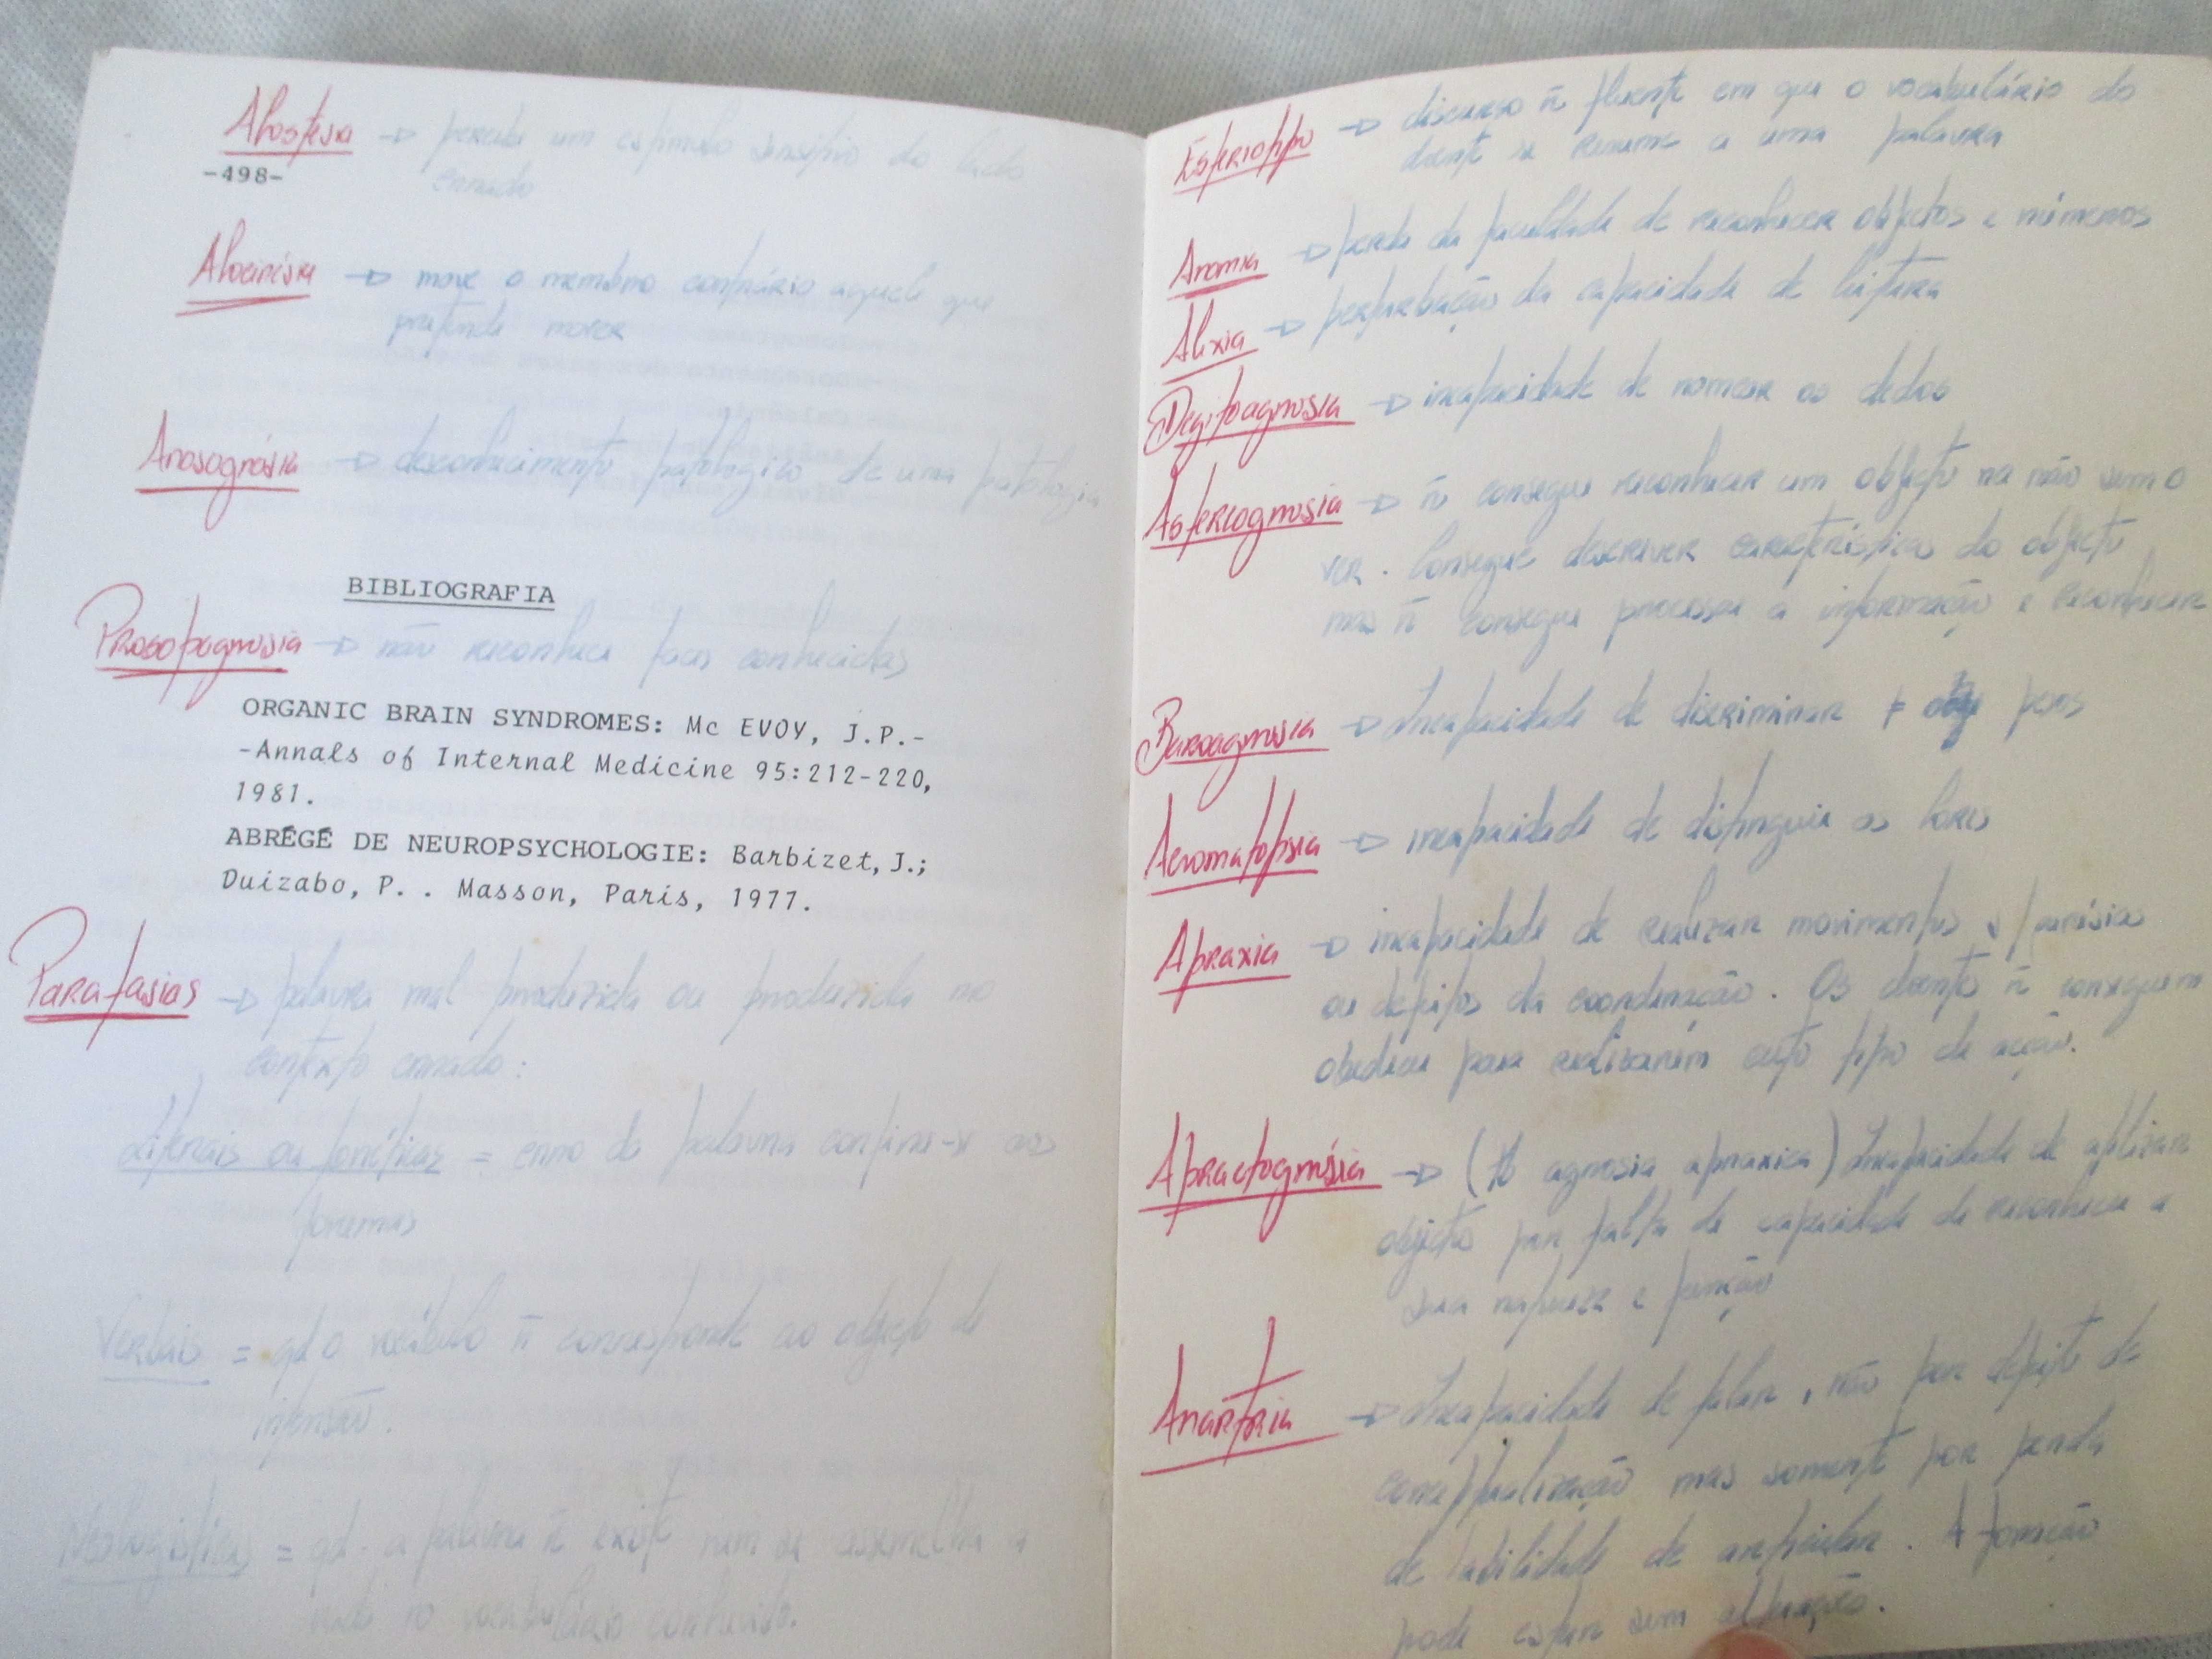 Alostesia → percebe um estimulo sensitivo do lado
errado
-498-
Alocinésia → move o membro contrário aquele que
pretende mover
Anosognosia → desconhecimento patologico de uma patologia
BIBLIOGRAFIA
Prosopagnosia → não reconhece faces conhecidas
ORGANIC BRAIN SYNDROMES: Mc EVOY, J.P.-
-Annals of Internal Medicine 95:212-220,
1981.
ABRÉGÉ DE NEUROPSYCHOLOGIE: Barbizet, J.;
Duizabo, P. . Masson, Paris, 1977.
Parafasias → palavra mal produzida ou produzida no
contexto errado:
Literais ou fonéticas = erro da palavra confina-se aos
fonemas
Verbais = qd o vocábulo ñ corresponde ao objecto de
intensão.
Neologísticas = qd. a palavra ñ existe nem se assemelha a
nada no vocabulário conhecido.
Esteriotipo → discurso ñ fluente em que o vocabulário do
doente se resume a uma palavra
Anomia → perda da faculdade de reconhecer objectos e números
Alexia → perturbação da capacidade de leitura
Degitoagnosia → incapacidade de nomear os dedos
Astereognosia → ñ consegue reconhecer um objecto na mão sem o
ver. Consegue descrever características do objecto
mas ñ consegue processar a informação e reconhecer
Baroagnosia → Incapacidade de discriminar ≠ pesos
Acromatopsia → incapacidade de distinguir as cores
Apraxia → incapacidade de realizar movimentos s/ parésias
ou defeitos da coordenação. Os doentes ñ conseguem
obedecer para realizarem certo tipo de acção.
Apractognósia → (agnosia apraxica) Incapacidade de utilizar
objectos por falta de capacidade de reconhecer a
sua natureza e função
Anartria → Incapacidade de falar, não por defeito de
conceptualização mas somente por perda
de habilidade de articular. A fonação
pode estar sem alterações.